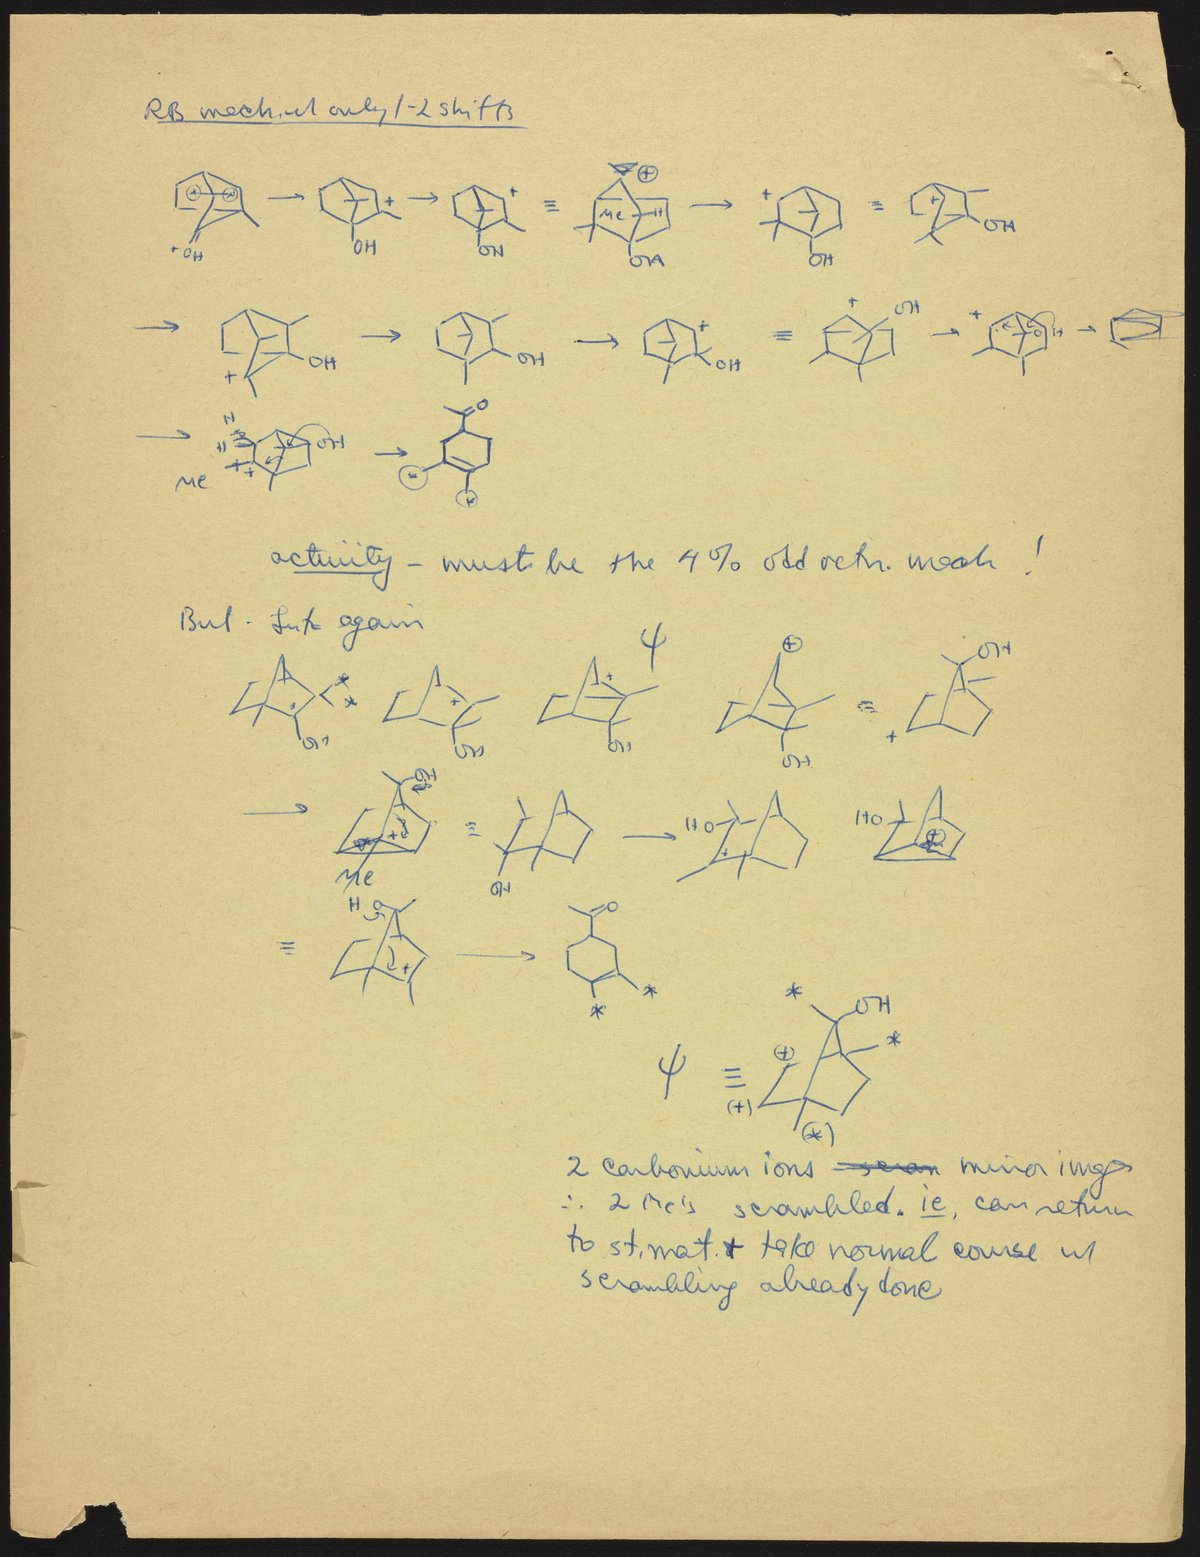 RB mech. w only 1-2 shifts
+ OH
OH
+
OH
+
≡
Me
H
+
OH
+
OH
≡
+
OH
+
OH
OH
+
OH
≡
+
OH
+
H
H
H
Me
+
+
OH
O
*
*
activity - must be the 4% odd retn. mech !
But - again
+
*
*
OH
+
OH
ψ
+
OH
+
OH
≡
OH
+
OH
+
Me
≡
OH
HO
+
HO
+
≡
H O
+
O
*
*
ψ ≡
*
OH
*
(+)
(+)
(*)
2 carbonium ions mirror imgs
∴ 2 Me's scrambled. ie, can return
to st. mat. + take normal course w
scrambling already done